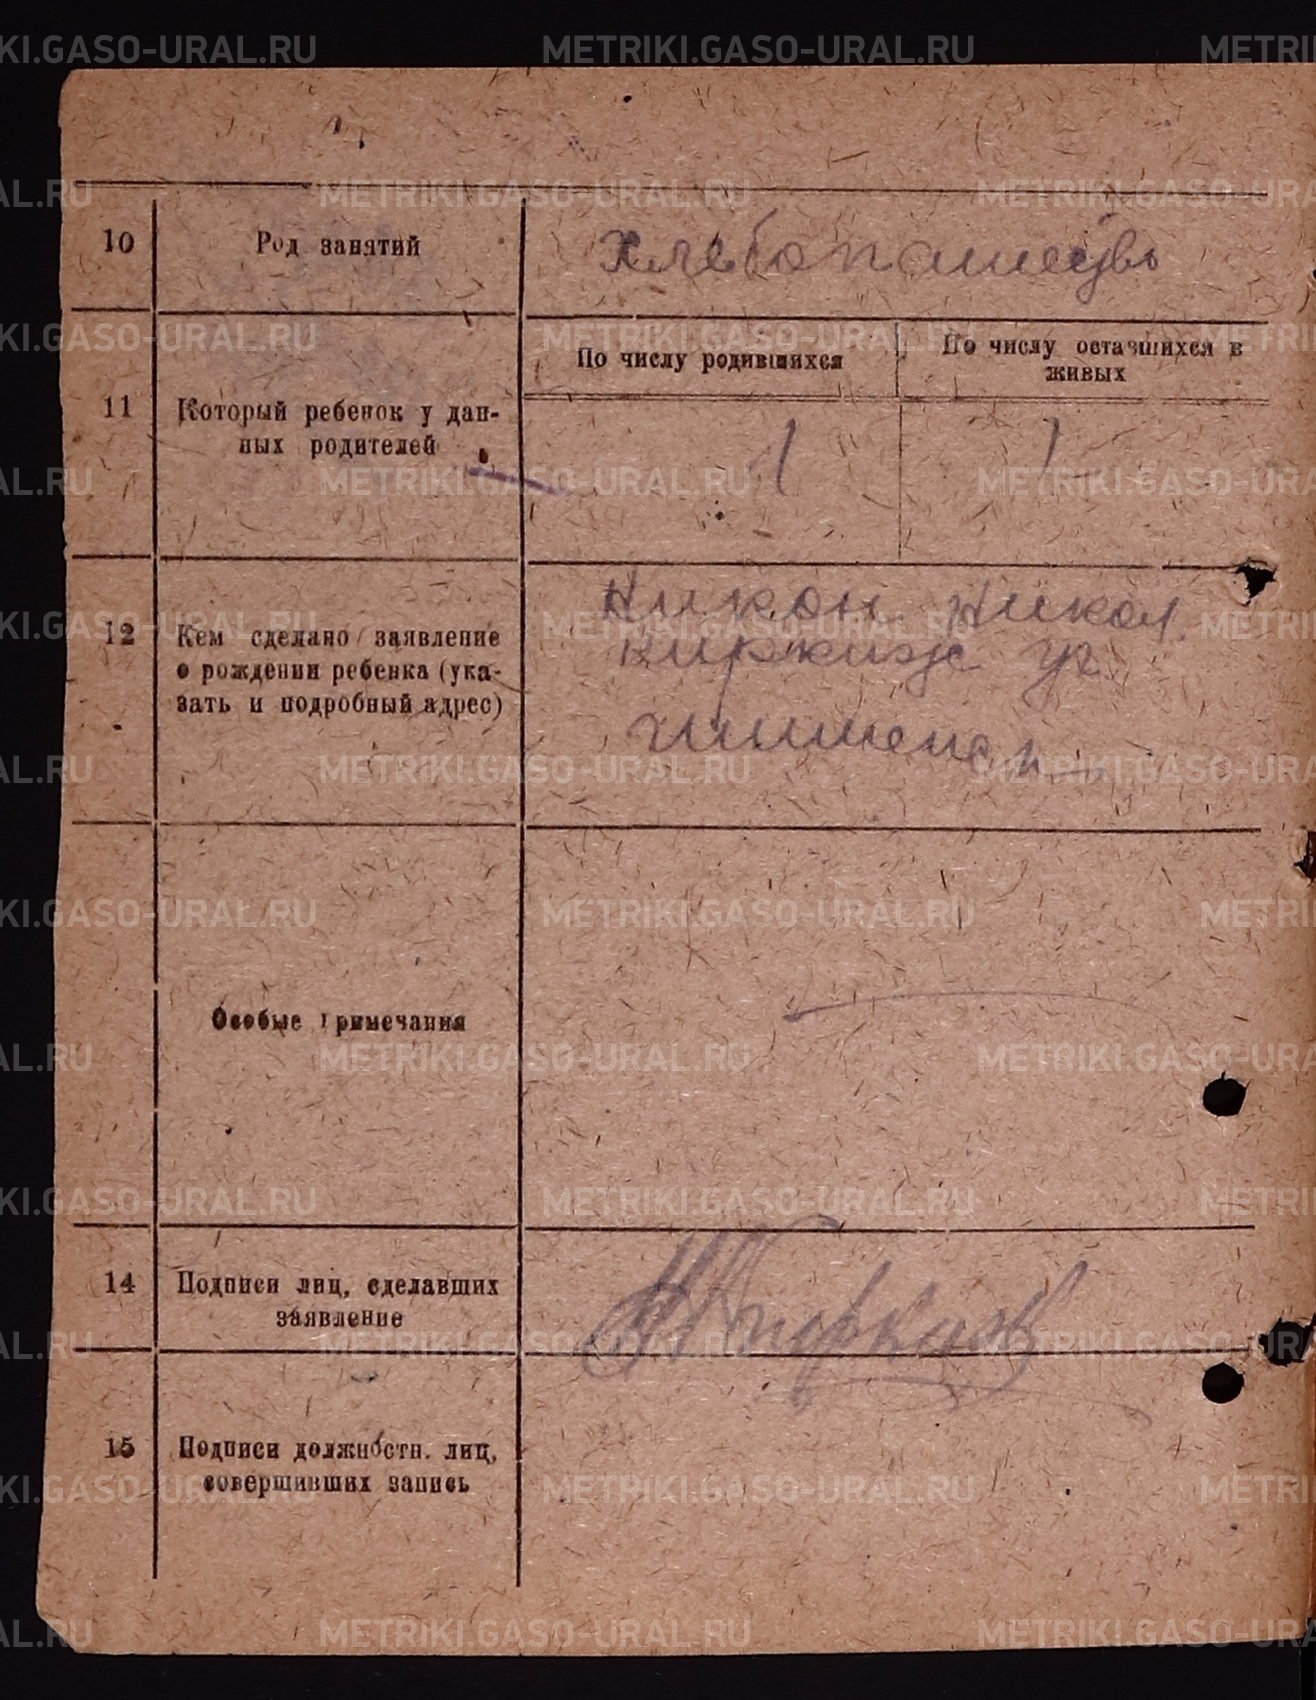 10
Род занятий
Хлебопашецъ
11
Который ребенок у дан-
ных родителей
По числу родившихся
По числу оставшихся в
живых
1
1
12
Кем сделано заявление
о рождении ребенка (ука-
зать и подробный адрес)
Никон Никол.
Особые примечания
14
Подписи лиц, сделавших
заявление
15
Подписи должностн. лиц,
совершивших запись
METRIKI.GASO-URAL.RU